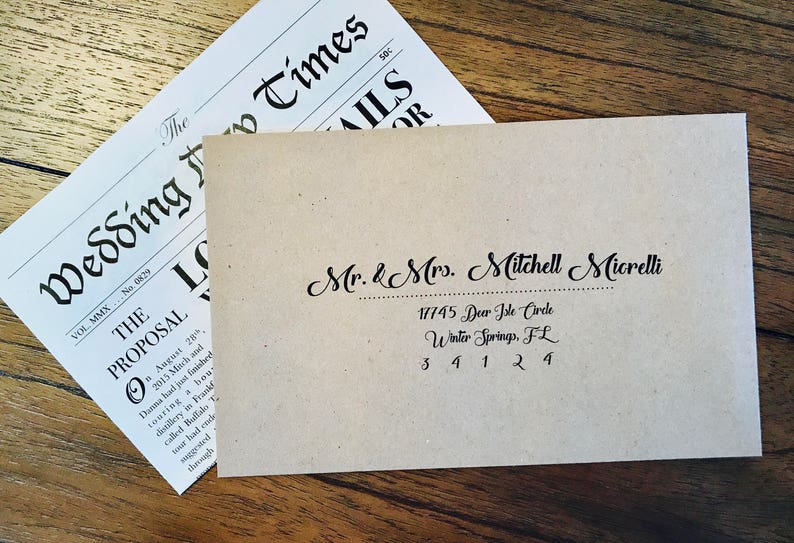 The
Wedding Day Times
50¢
VOL. MMX . . . No. 0829
THE
PROPOSAL
On August 28th,
2015 Mitch and
Danna had just finished
touring a bou
distillery in Frankf
called Buffalo T
tour had ende
suggested
through
LO
AILS
OR
Mr. & Mrs. Mitchell Miorelli
17745 Deer Isle Circle
Winter Springs, FL
3 4 1 2 4